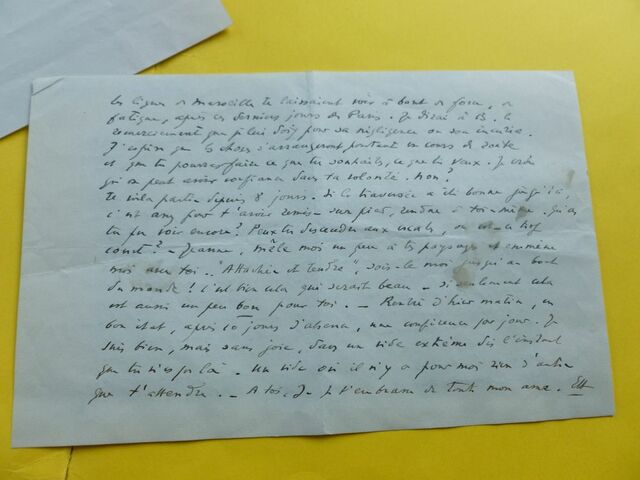 Les lignes de Marseille te laissaient voir à bout de force, de
fatigue, après ces derniers jours de Paris. Je dirai à B. le
remerciement que je lui dois pour sa négligence ou son incurie.
J'espère que les choses s'arrangeront pourtant en cours de route
et que tu pourras faire ce que tu souhaites, ce que tu veux. Je crois
qu'on peut avoir confiance dans ta volonté. Non?
Te voilà partie depuis 8 jours. Si la traversée a été bonne jusqu'ici,
c'est assez pour t'avoir remise sur pied, rendue à toi-même. Qu'as
tu pu voir encore? Peux tu descendre aux escales, ou est-ce trop
court? - Jeanne, mêle moi un peu à tes paysages et emmène
moi avec toi.. "Attachée et tendre", sois-le moi jusqu'au bout
du monde! C'est bien cela qui serait beau - si seulement cela
est aussi un peu bon pour toi. - Rentré d'hier matin, en
bon état, après 10 jours d'absence, une conférence par jour. Je
suis bien, mais sans joie, dans un vide extrême dès l'instant
que tu n'es pas là. Un vide où il n'y a pour moi rien d'autre
que t'attendre. - A toi, J- Je t'embrasse de toute mon âme.